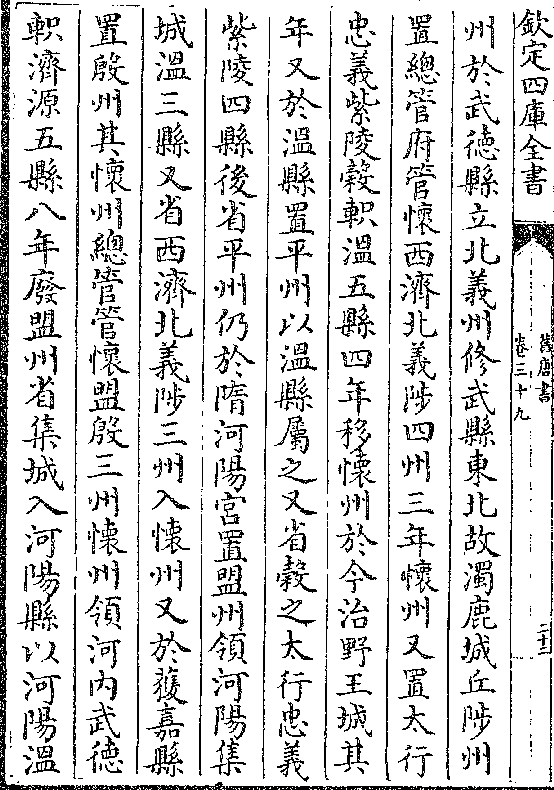 欽定四庫全書
舊唐書
卷三十九
二十三
州於武德縣立北義州修武縣東北故濁鹿城丘陟州
置總管府管懷西濟北義陟四州三年懷州又置太行
忠義紫陵穀軹溫五縣四年移懷州於今治野王城其
年又於溫縣置平州以溫縣屬之又省穀之太行忠義
紫陵四縣後省平州仍於隋河陽宮置盟州領河陽集
城溫三縣又省西濟北義陟三州入懷州又於獲嘉縣
置殷州其懷州總管管懷盟殷三州懷州領河内武德
軹濟源五縣八年廢盟州省集城入河陽縣以河陽溫